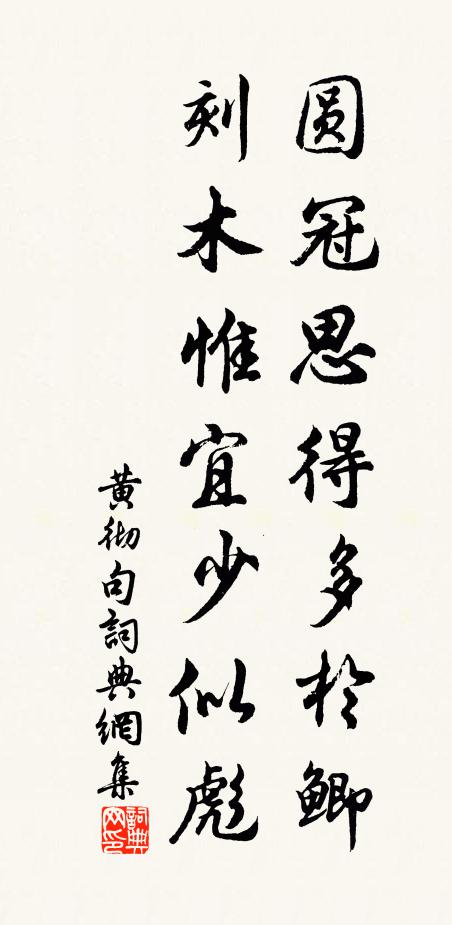 圆冠思得多於鲫
刻木惟宜少似彪
黄彻句詞典網集
詞典网印